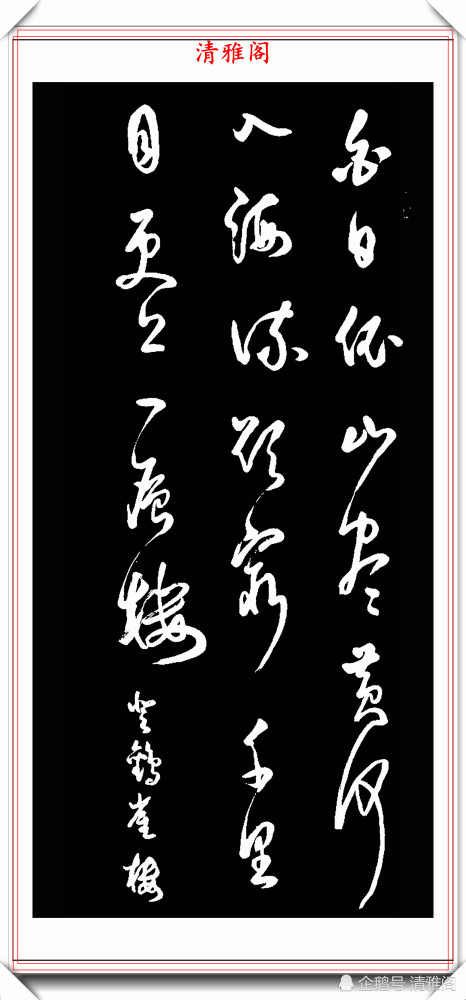 清雅阁
白日依山尽黄河
入海流欲穷千里
目更上一层楼
登鹳雀楼
企鹅号 清雅阁